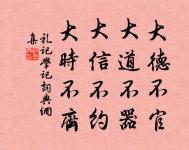 大德不官
大道不器
大信不約
大時不齊
礼記學記詞典網
集